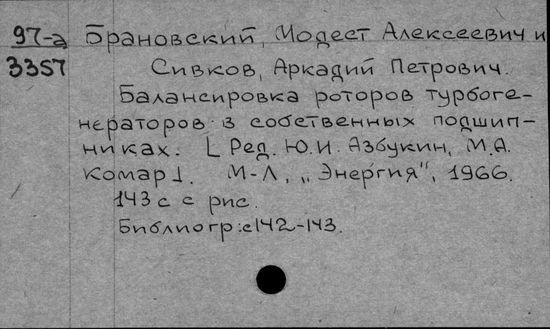 97-а Брановский, Модест Алексеевич и
3357 Сивков, Аркадий Петрович.
Балансировка роторов турбоге-
нераторов в собственных подшип-
никах. [Ред. Ю.И. Азбукин, М.А.
Комар]. М-Л, „Энергия", 1966.
143 с с рис.
Библиогр: с142-143.